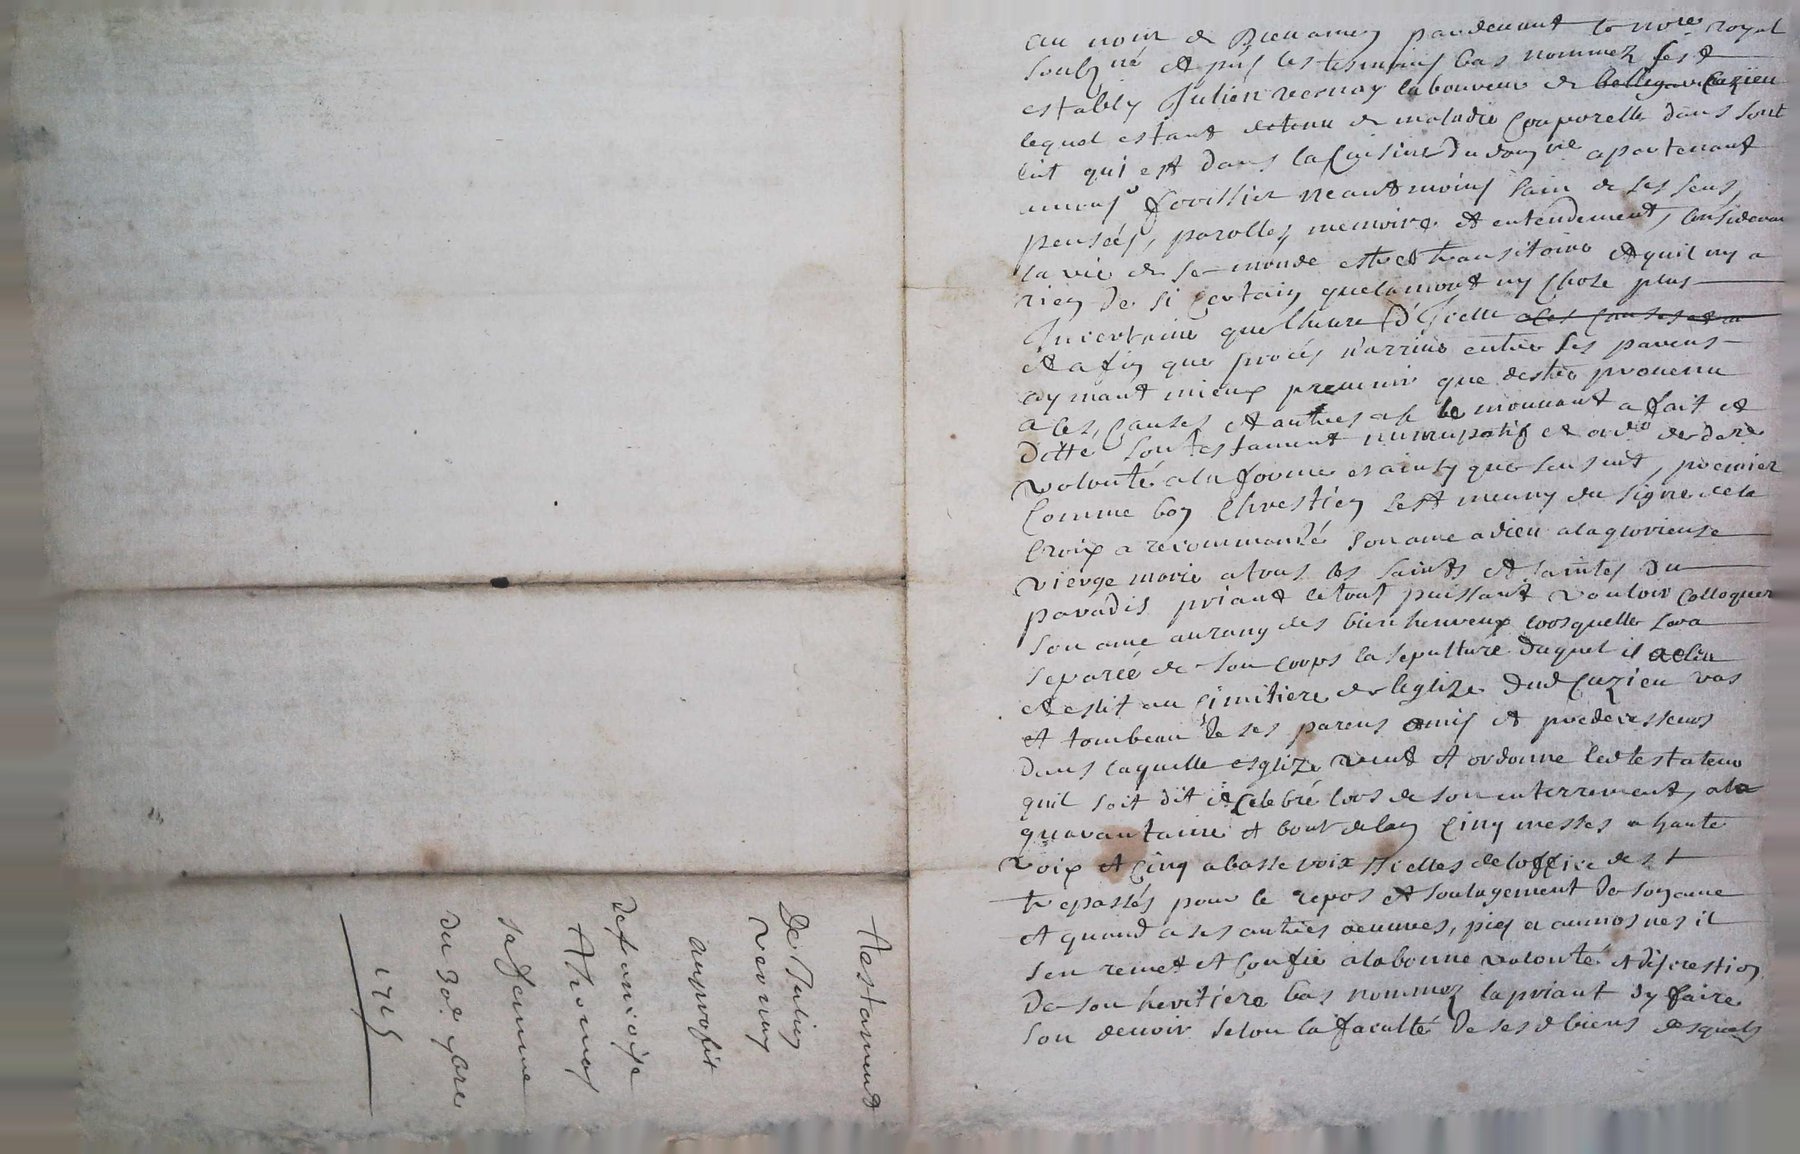 au nom de Dieu amen pardevant le no.re royal
soub.né et pnt les tesmoins bas nommez sest
estably Julien vernay laboureur de Cuzieu
lequel estant detenu de maladie corporelle dans sont
lit qui est dans la cuisine du apartenant
neantmoins sain de ses sens,
pensées, parolles, memoire et entendement, considerant
la vie de se monde estre transitoire et quil ny a
rien de si certain que la mort ny chose plus
Incertaine que lheure d'Icelle
et afin que procés n'arrive entre ses parens
aymant mieux prevenir que destre provenu
a ces causes et autres a le mouvant a fait et
ditté son testament nuncupatif et ord.re de dere
volonté a la forme et ainsy que sensuit, premier
comme bon chrestien sest muny du signe de la
croix a recommandé son ame a dieu a la glorieuse
vierge marie a tous les saints et saintes du
paradis priant le tout puissant vouloir colloquer
son ame au rang des bien heureux lorsquelle sera
separée de son corps la sepulture duquel il a elu
et eslit au cimitiere de leglize dud Cuzieu vas
et tombeau de ses parens amis et predecesseurs
dans laquelle esglize veut et ordonne led testateur
quil soit dit et celebré lors de son enterrement, a la
quarantaine et bout de lan cinq messes a haute
voix et cinq a basse voix Icelles de loffice des t
trepassés pour le repos et soulagement de son ame
et quand a ses autres oeuvres, pies et aumosnes il
sen remet et confie a la bonne volonté et discrestion
de son heritiere bas nommez la priant dy faire
son devoir selon la faculté de ses d biens desquels
testament
De Julien
vernay
au profit
de francoise
Thomas
sa femme
du 30e 9bre